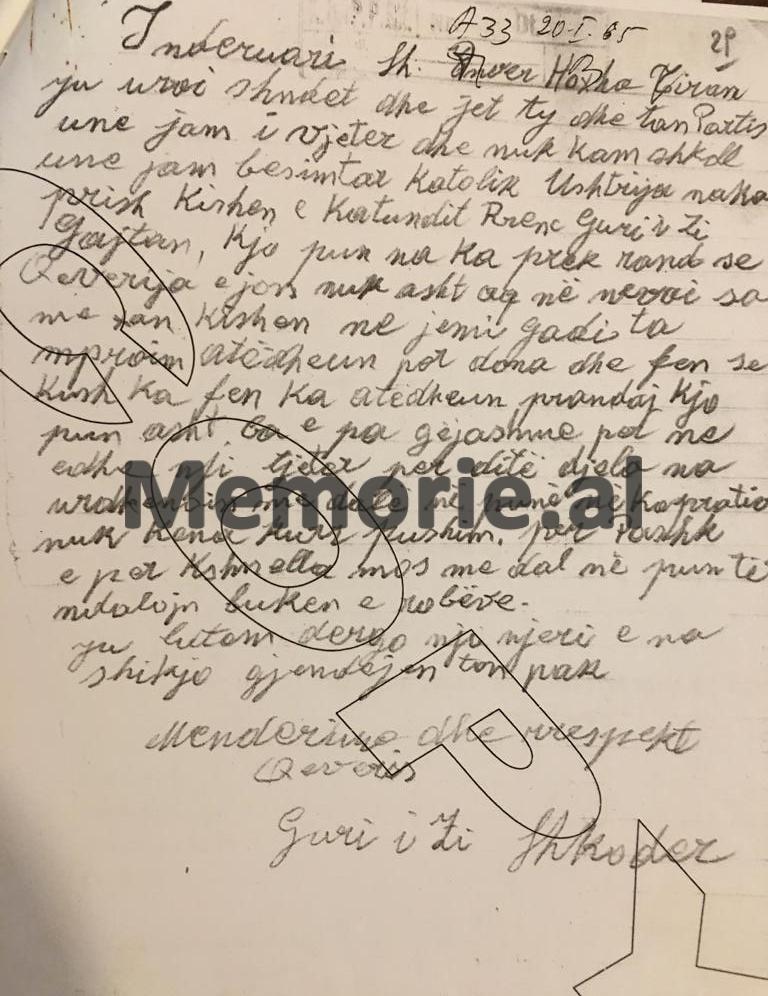 A33 20-I-65
29
Inderuari Sh. Enver Hoxha Tiran
ju uroi shndet dhe jet ty dhe tan Partis
une jam i vjeter dhe nuk kam shkoll
une jam besimtar Katolik Ushtrija naka
prish Kishen e Katundit Rrenc Guri i Zi
Gajtan, Kjo pun na Ka prek rand se
Qeverija ejon nuk asht aq në nevoi sa
me zan Kishen ne jemi gadi ta
mproim atëdheun por dona dhe fen se
Kush Ka fen Ka atëdheun prandaj Kjo
pun asht ba e pa gëjashme per ne
edhe ndi tjeter per ditë djela na
me dalë në punë ne
nuk Kena Kurr pushim, per Pashk
e per Kshnella mos me dal në pun të
ndalojn buken e robëve.
ju lutem dergo nji njeri e na
shikjo gjendejen ton pak
Menderime dhe rrespekt
Qeveris
Guri i Zi Shkoder
Memorie.al
COPY